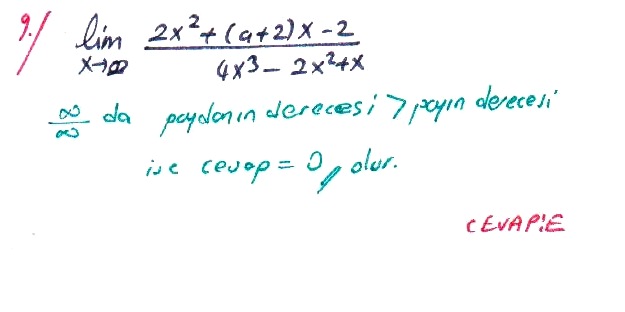 9./ lim x→∞ 2x²+(a+2)x-2 / 4x³-2x²+x
∞/∞ da paydanın derecesi > payın derecesi
ise cevap = 0 olur.
CEVAP:E